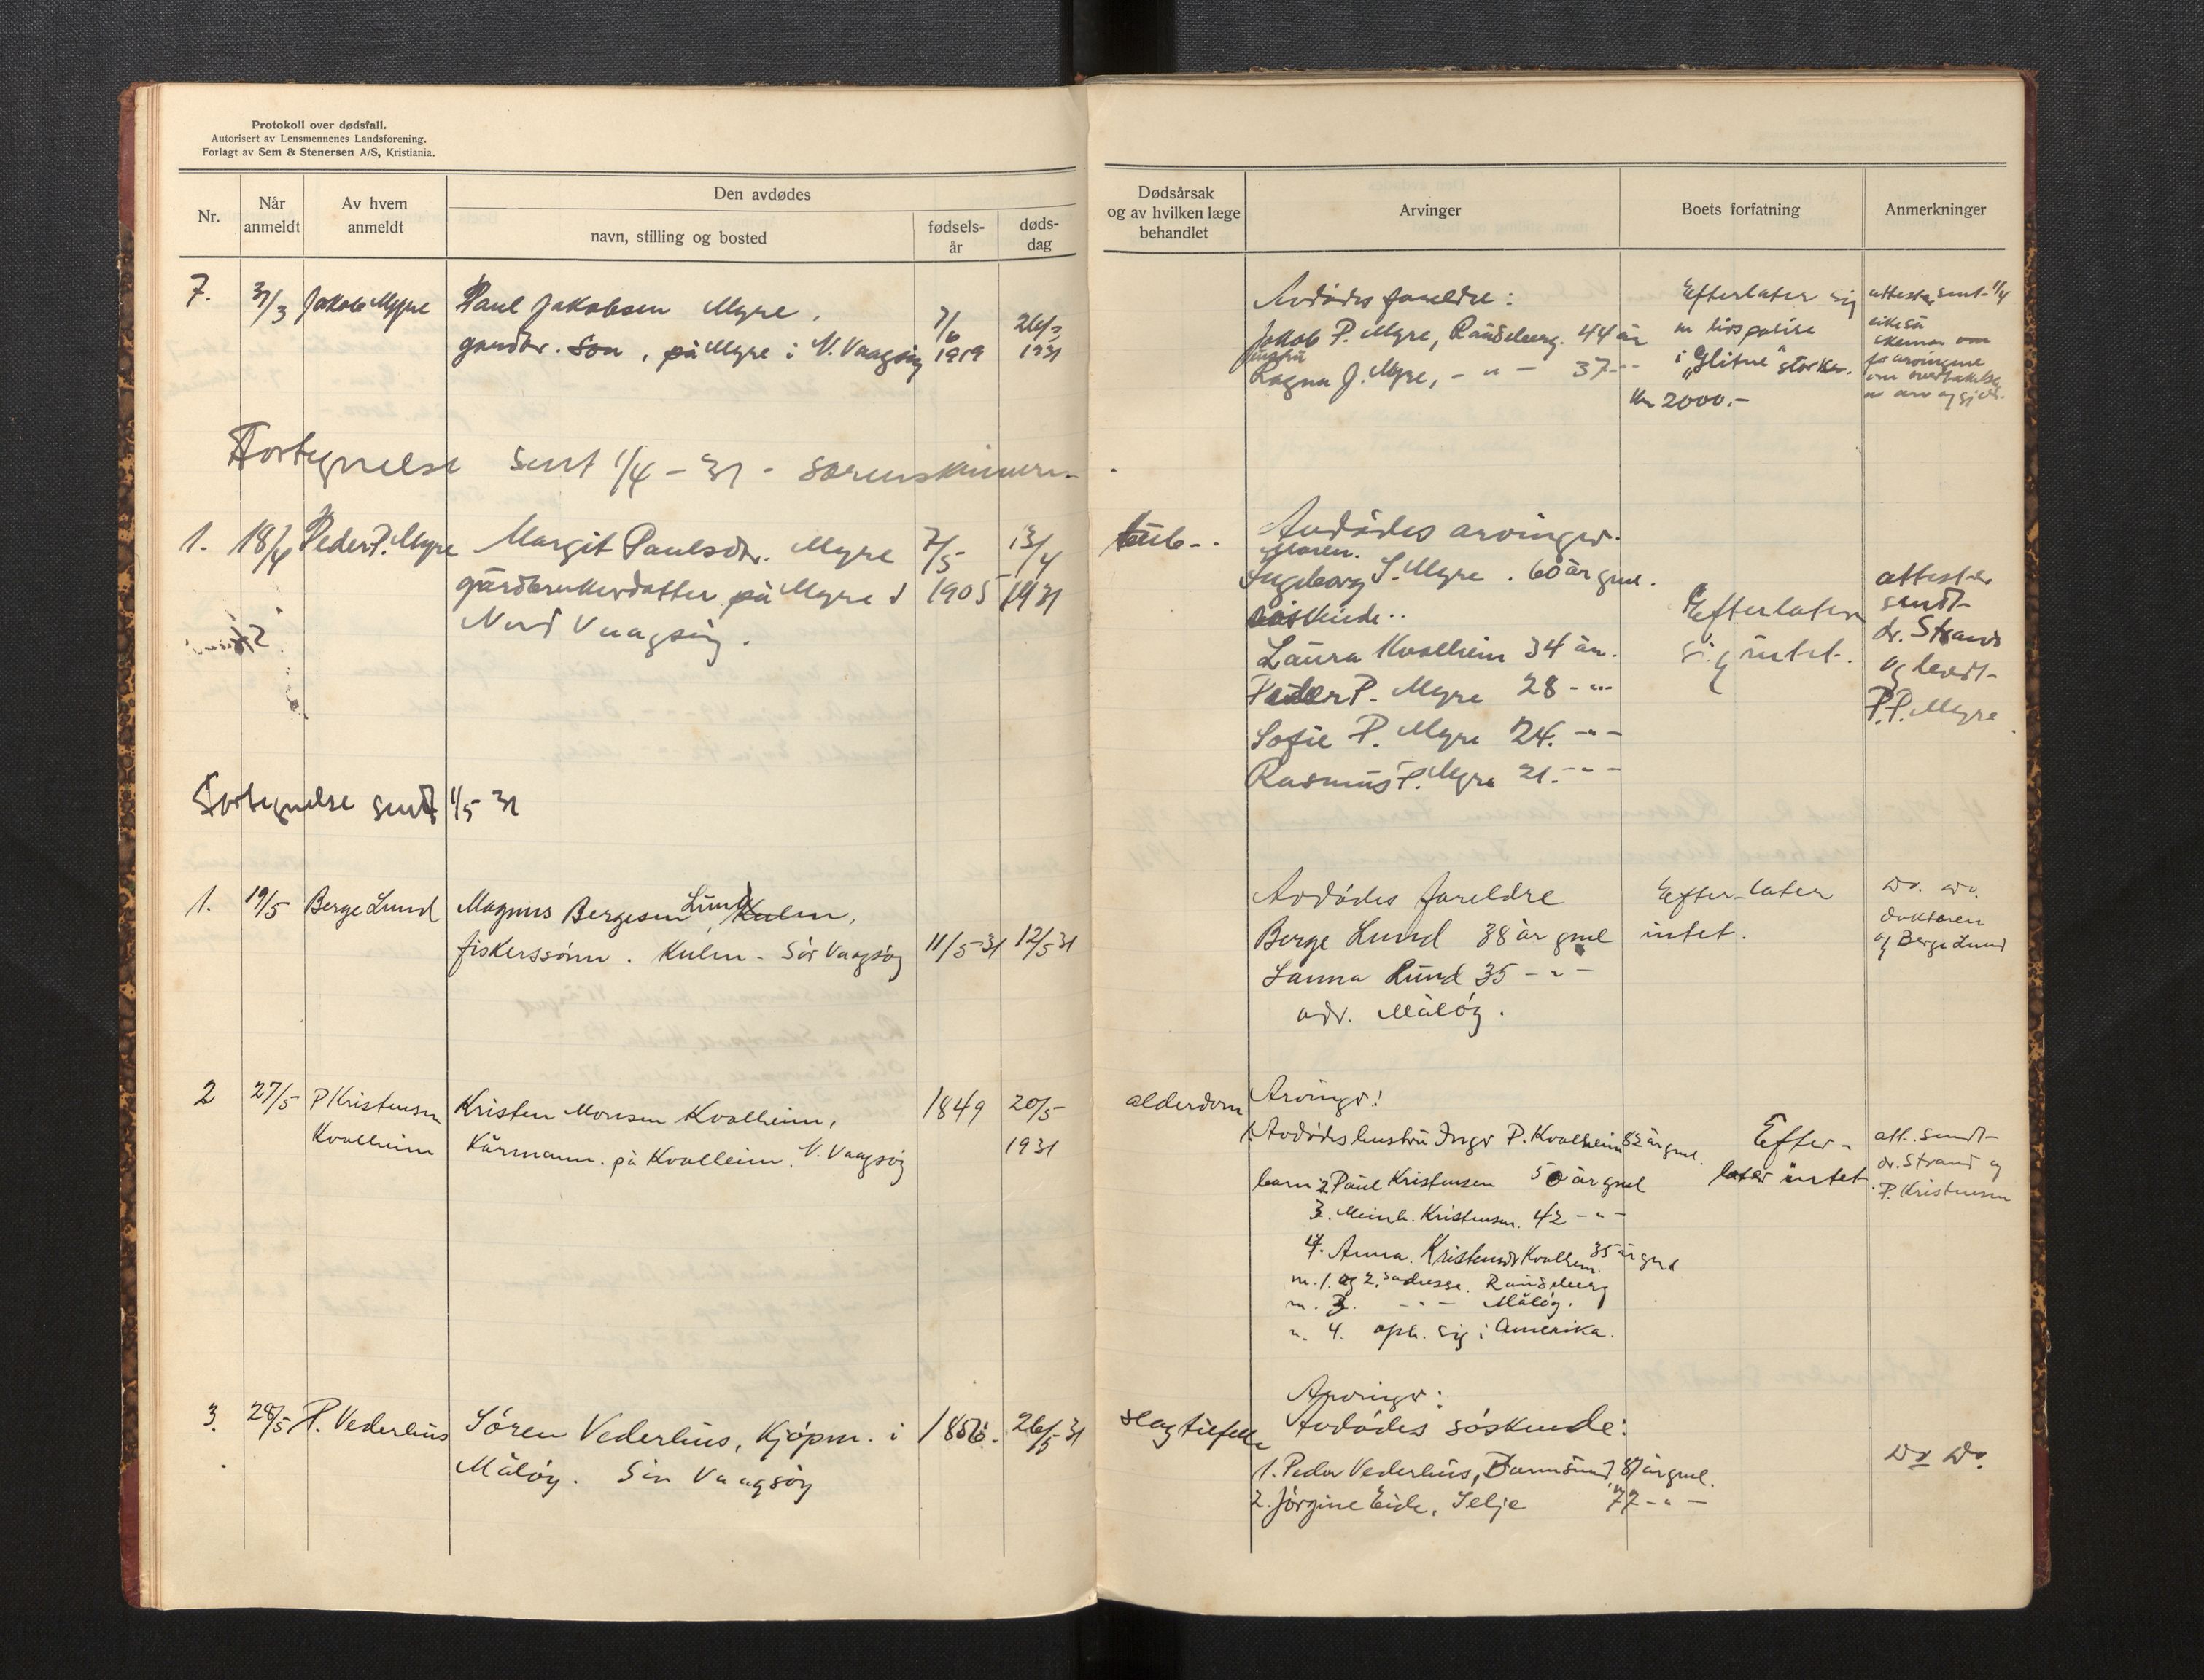 Protokoll over dødsfall.
Autorisert av Lensmennenes Landsforening.
Forlagt av Sem & Stenersen A/S, Kristiania.
Nr.
Når anmeldt
Av hvem anmeldt
Den avdødes
navn, stilling og bosted
fødsels-år
døds-dag
Dødsårsak og av hvilken læge behandlet
Arvinger
Boets forfatning
Anmerkninger
7. 31/3 Jakob Myre Paul Jakobsen Myre,
gardbr. son, på Myre i N. Vaagsöy 7/6 1919 26/3 1931
Avdödes foreldre:
Jakob P. Myre, Raudeberg. 44 år
hustru
Ragna J. Myre, - " - 37 - "
Efterlater sig
en livspolise
i "Glitne" stor kr.
kr 2000.-
attester sent 1/4
likeså
skema om
fra arvingene
om overtakelse
av arv og gjeld.
Fortegnelse sent 1/4 - 31 - sorenskriveren
1. 18/4 Peder P. Myre Margit Paulsdtr. Myre 7/5 13/4
gårdbrukerdatter på Myre i 1905 1931
Nord Vaagsöy.
tub.
Avdödes arvinger.
Moren.
Ingeborg S. Myre. 60 år gml.
söskende..
Laura Kvalheim 34 år.
Peder P. Myre 28 - " -
Sofie P. Myre 24. - " -
Rasmus P. Myre 21. - " -
Efterlater
sig intet.
attester
sendt
dr. Strand
og levert
P.P. Myre
Fortegnelse sendt 1/5 31
1. 19/5 Berge Lund Magnus Bergesen Lund Kulen,
fiskerssönn. Kulen - Sör Vaagsöy 11/5-31 12/5 31
Avdödes foreldre
Berge Lund 38 år gml
Lanna Lund 35 - " -
adr. Målöy.
Efterlater
intet.
Do. Do.
doktoren
og Berge Lund
2 27/5 P Kristensen Kvalheim Kristen Monsen Kvalheim,
Kårmann. på Kvalheim. N. Vaagsöy 1849 20/5 1931
alderdom
Arvinger:
1. Avdödes hustru Inger P. Kvalheim 82 år gml.
barn: 2. Paul Kristensen 50 år gml
3. Meinh. Kristensen. 42 - " -
4. Anna Kristensdr Kvalheim. 35 år gml
nr. 1. og 2. adresse. Raudeberg
nr. 3. - " - Målöy.
nr. 4. oph. sig i Amerika.
Efter-
later intet
att. sendt
dr. Strand og
P. Kristensen
3. 28/5 P. Vederhus Sören Vederhus, Kjöpm. i 1856. 26/5-31
Målöy. Sör Vaagsöy
slagtilfelle
Arvinger:
Avdödes söskende:
1. Peder Vederhus, 81 år gml.
2. Jörgine Eide, Selje 77 - " -
Do Do.